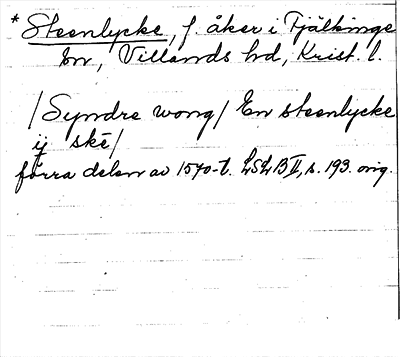 * Steenlycke, f. åker i Fjälkinge
sn, Villands hd, Krist. l.
/Syndre wong/ En steenlycke
ij ske/
förra delen av 1570-t. LSLB II, s. 193. orig.